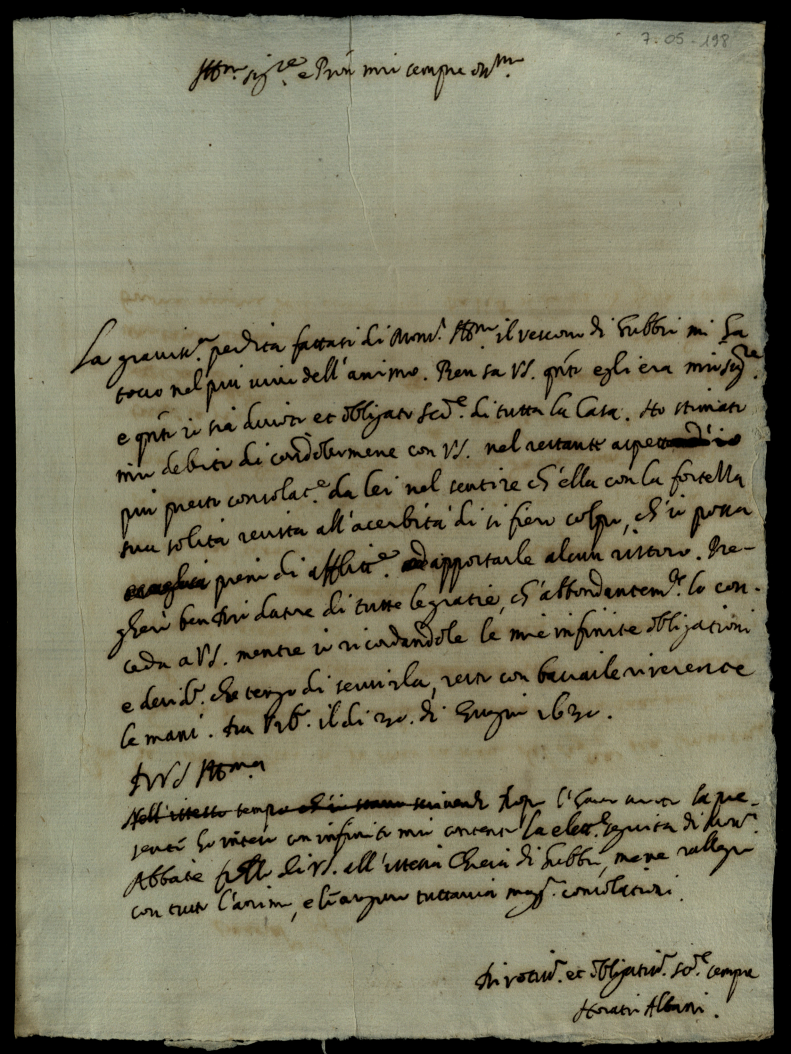 7.05.198
Ill.mo sig.re e Pron mio sempre oss.mo
La graviss.a perdita fattasi di Mons.r Ill.mo il vescovo di Gubbio mi ha
tocco nel più vivo dell'animo. Ben sa VS. q.nto egli era mio sig.re
e q.nto io sia divoto et obligato se.re di tutta la Casa. Ho stimato
mio debito di condolermene con VS. nel restante
più presto consolat.e da lei nel sentire ch'ella con la fortezza
sua solita resista all'acerbità di sì fiero colpo, ch'io possa
pieno di afflitt.e apportarle alcun ristoro. Pre-
gherò ben Dio datore di tutte le gratie, ch'abbondantem.te lo con-
ceda a VS. mentre io ricordandole le mie infinite obligationi
e desid.o che tengo di servirla, resto con baciarle riverente
le mani. Da Urb.o il dì 30. di Giugno 1630.
D VS Ill.ma
Nell'istesso tempo ch'io stavo scrivendo Dopo l'haver scritto la pre-
sente ho inteso con infinito mio contento la elett.e seguita di Mons.r
Abbate fr̃ello di VS. all'istessa Chiesa di Gubbio, me ne rallegro
con tutto l'animo, e le auguro tuttavia magg.ri consolationi.
Divotiss.o et obligatiss.o se.re sempre
Horatio Albani.